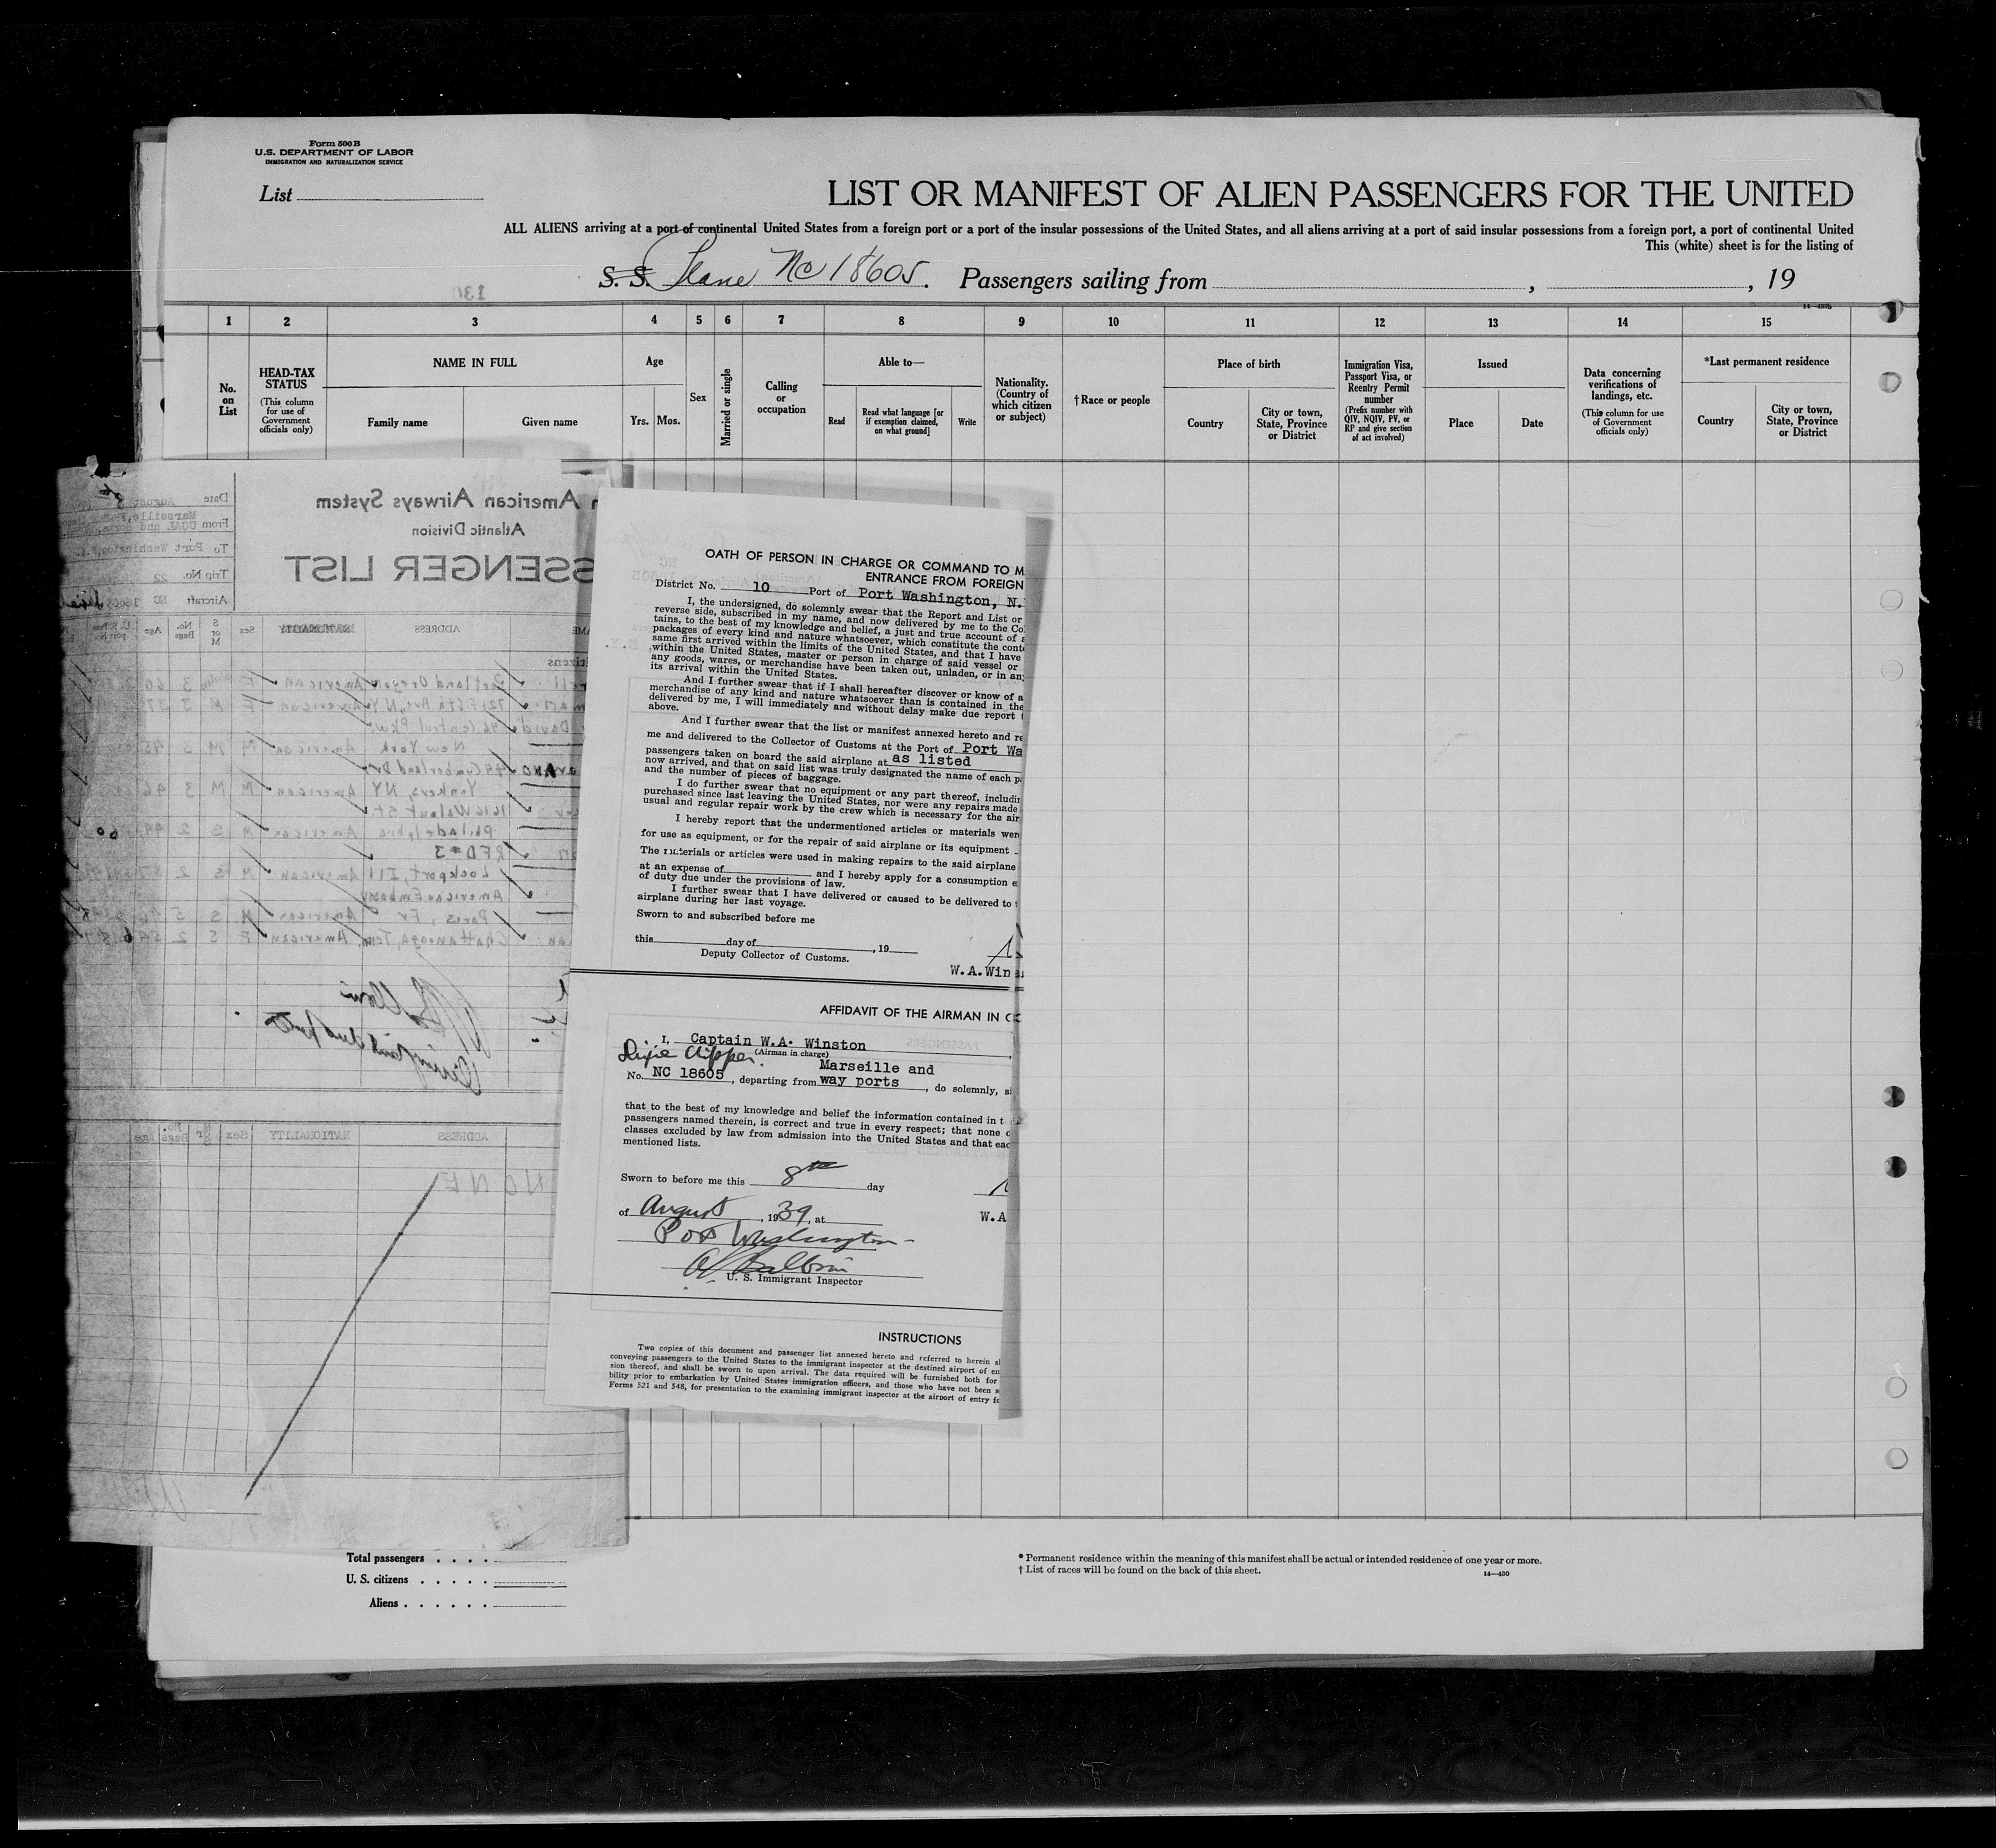 Form 500 B
U.S. DEPARTMENT OF LABOR
IMMIGRATION AND NATURALIZATION SERVICE
List
LIST OR MANIFEST OF ALIEN PASSENGERS FOR THE UNITED
ALL ALIENS arriving at a port of continental United States from a foreign port or a port of the insular possessions of the United States, and all aliens arriving at a port of said insular possessions from a foreign port, a port of continental United
This (white) sheet is for the listing of
S. S. Plane Nc 18605. Passengers sailing from , , 19
14—430b
1 2 3 4 5 6 7 8 9 10 11 12 13 14 15
No. on List
HEAD-TAX STATUS
(This column for use of Government officials only)
NAME IN FULL
Family name
Given name
Age
Yrs. Mos.
Sex
Married or single
Calling or occupation
Able to—
Read
Read what language [or if exemption claimed, on what ground]
Write
Nationality. (Country of which citizen or subject)
† Race or people
Place of birth
Country
City or town, State, Province or District
Immigration Visa, Passport Visa, or Reentry Permit number
(Prefix number with QIV, NQIV, PV, or RP and give section of act involved)
Issued
Place
Date
Data concerning verifications of landings, etc.
(This column for use of Government officials only)
*Last permanent residence
Country
City or town, State, Province or District
American Airways System
Atlantic Division
SSENGER LIST
Date August 8
From Marseille,
To Port Washington,
Trip No. 22
Aircraft NC 18605
ADDRESS NATIONALITY Sex S or M No. Bags Age
Portland Oregon American F 3 60
American F M 3
David 46 Central Pkw
New York American M M 3
Cumberland Dr
Yonkers, NY American M M 3 46
1616 Walnut St
Philadelphia American M S 2
RFD #3
Lockport, Ill American M S 2
American Embassy
Paris, Fr American M S 5
Chattanooga, Tenn. American F S 2
ADDRESS NATIONALITY Sex No. Bags Age
NONE
OATH OF PERSON IN CHARGE OR COMMAND TO M
ENTRANCE FROM FOREIGN
District No. 10 Port of Port Washington, N.
I, the undersigned, do solemnly swear that the Report and List or
reverse side, subscribed in my name, and now delivered by me to the Co
tains, to the best of my knowledge and belief, a just and true account of a
packages of every kind and nature whatsoever, which constitute the cont
same first arrived within the limits of the United States, and that I have
within the United States, master or person in charge of said vessel or
any goods, wares, or merchandise have been taken out, unladen, or in an
its arrival within the United States.
And I further swear that if I shall hereafter discover or know of a
merchandise of any kind and nature whatsoever than is contained in the
delivered by me, I will immediately and without delay make due report t
above.
And I further swear that the list or manifest annexed hereto and re
me and delivered to the Collector of Customs at the Port of Port Wa
passengers taken on board the said airplane at as listed
now arrived, and that on said list was truly designated the name of each p
and the number of pieces of baggage.
I do further swear that no equipment or any part thereof, includin
purchased since last leaving the United States, nor were any repairs made
usual and regular repair work by the crew which is necessary for the air
I hereby report that the undermentioned articles or materials wer
for use as equipment, or for the repair of said airplane or its equipment
The materials or articles were used in making repairs to the said airplane
at an expense of and I hereby apply for a consumption e
of duty due under the provisions of law.
I further swear that I have delivered or caused to be delivered to t
airplane during her last voyage.
Sworn to and subscribed before me
this day of , 19
Deputy Collector of Customs.
W.A.Win
AFFIDAVIT OF THE AIRMAN IN C
I, Captain W.A. Winston ,
(Airman in charge)
Dixie Clipper
No. NC 18605, departing from Marseille and way ports, do solemnly, si
that to the best of my knowledge and belief the information contained in t
passengers named therein, is correct and true in every respect; that none o
classes excluded by law from admission into the United States and that eac
mentioned lists.
Sworn to before me this 8th day
of August, 1939, at
W.A
Port Washington
U. S. Immigrant Inspector
INSTRUCTIONS
Two copies of this document and passenger list annexed hereto and referred to herein sh
conveying passengers to the United States to the immigrant inspector at the destined airport of en
sion thereof, and shall be sworn to upon arrival. The data required will be furnished both for
bility prior to embarkation by United States immigration officers, and those who have not been s
Forms 521 and 548, for presentation to the examining immigrant inspector at the airport of entry fo
Total passengers . . . .
U. S. citizens . . . . .
Aliens . . . . . .
* Permanent residence within the meaning of this manifest shall be actual or intended residence of one year or more.
† List of races will be found on the back of this sheet.
14—430